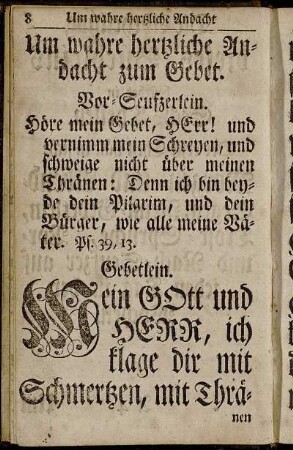 8 Um wahre hertzliche Andacht
Um wahre hertzliche An-
dacht zum Gebet.
Vor-Seufzerlein.
Höre mein Gebet, HErr! und
vernimm mein Schreyen, und
schweige nicht über meinen
Thränen: Denn ich bin bey-
de dein Pilgrim, und dein
Bürger, wie alle meine Vä-
ter. Ps. 39, 13.
Gebetlein.
Mein GOtt und
HERR, ich
klage dir mit
Schmertzen, mit Thrä-
nen